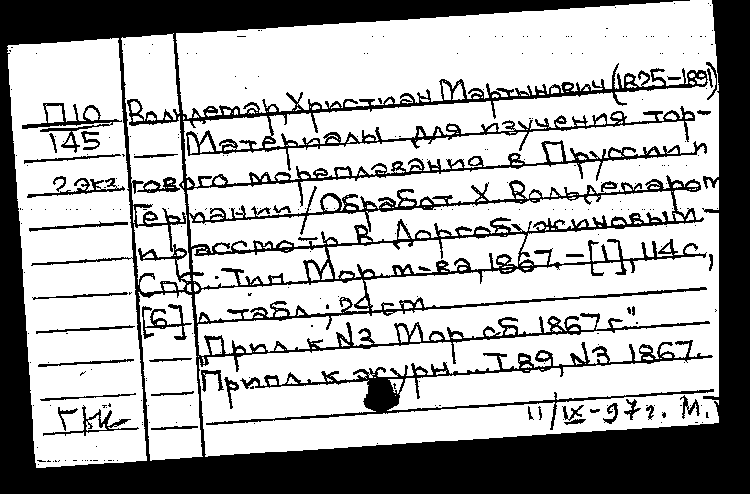 П10 Вольдемар, Христиан Мартынович (1825-1891)
145 Материалы для изучения тор-
2 экз. гового мореплавания в Пруссии и
Германии / Обработ. Х. Вольдемаром
и рассмотр. В. Доргобужиновым. -
Спб.: Тип. Мор. м-ва, 1867. - [1], 114 с.,
[6] л. табл.; 24 см.
"Прил. к N3 Мор. сб. 1867 г."
"Прил. к журн. ... Т. 89, N3 1867.
11/IX-97 г. М.